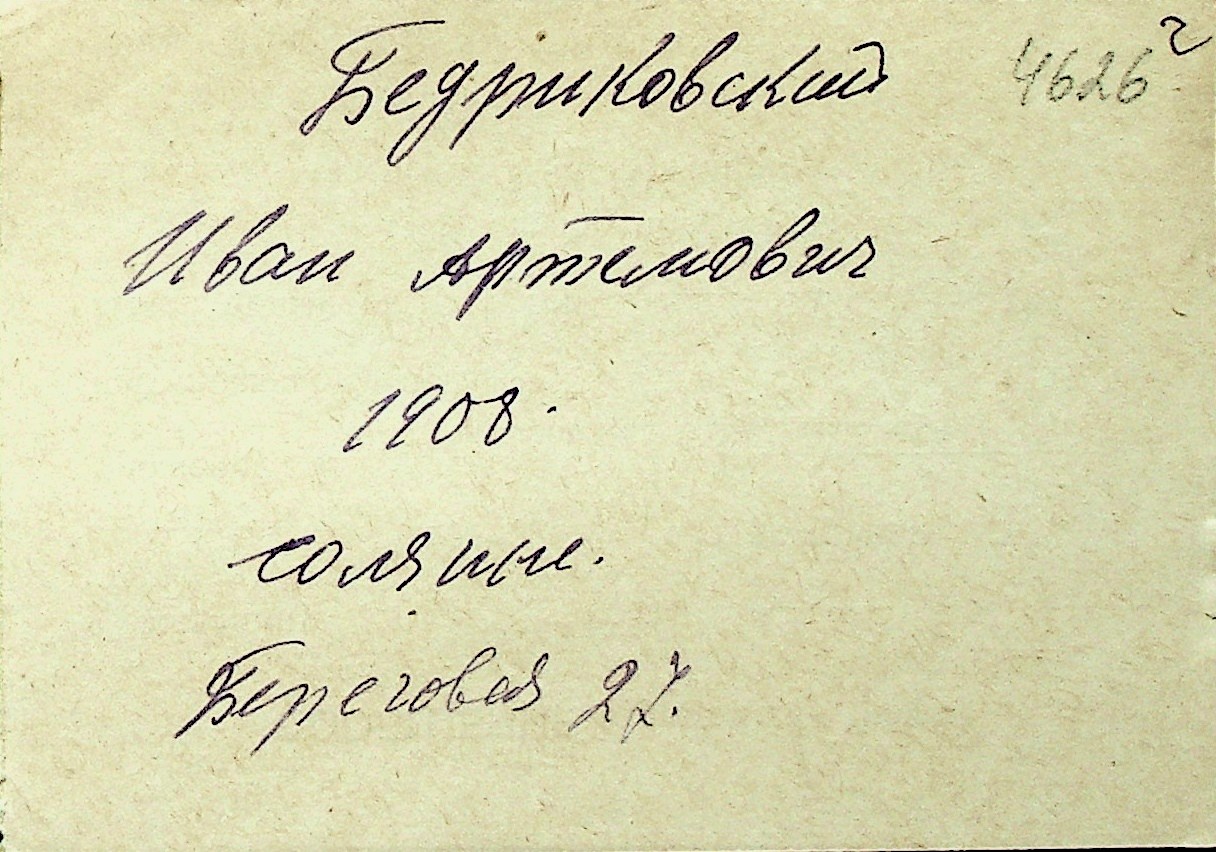 Бедриковский 4626 г
Иван Артемович
1908.
Береговая 27.